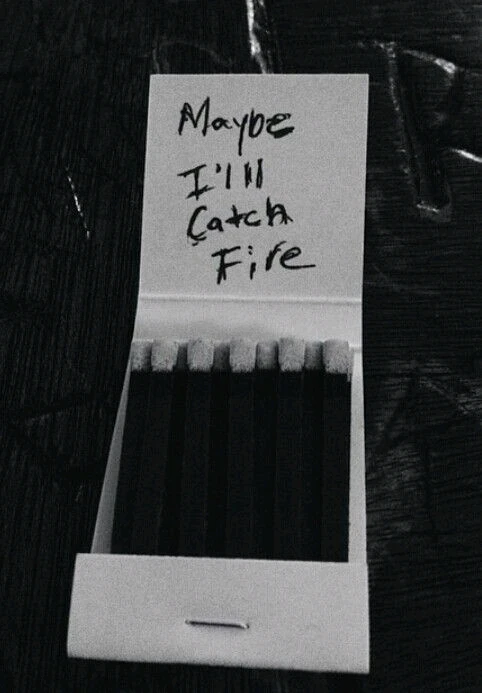 Maybe
I'll
Catch
Fire